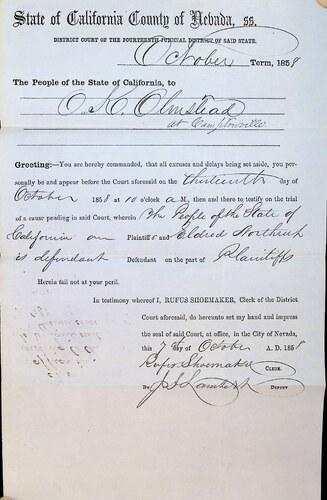 State of California County of Nevada, ss.
DISTRICT COURT OF THE FOURTEENTH JUDICIAL DISTRICT OF SAID STATE.
October Term, 1858
The People of the State of California, to
O. K. Olmstead
at Camptonville
Greeting:—You are hereby commanded, that all excuses and delays being set aside, you per-
sonally be and appear before the Court aforesaid on the thirteenth day of
October 1858 at 10 o'clock a M., then and there to testify on the trial
of a cause pending in said Court, wherein The People of the State of
California are Plaintiffs and Eldred Northrup
is defendant Defendant on the part of Plaintiffs
Herein fail not at your peril.
In testimony whereof I, RUFUS SHOEMAKER, Clerk of the District
Court aforesaid, do hereunto set my hand and impress
the seal of said Court, at office, in the City of Nevada,
this 7th day of October A. D. 1858
Rufus Shoemaker CLERK.
By J. S. Lambert DEPUTY